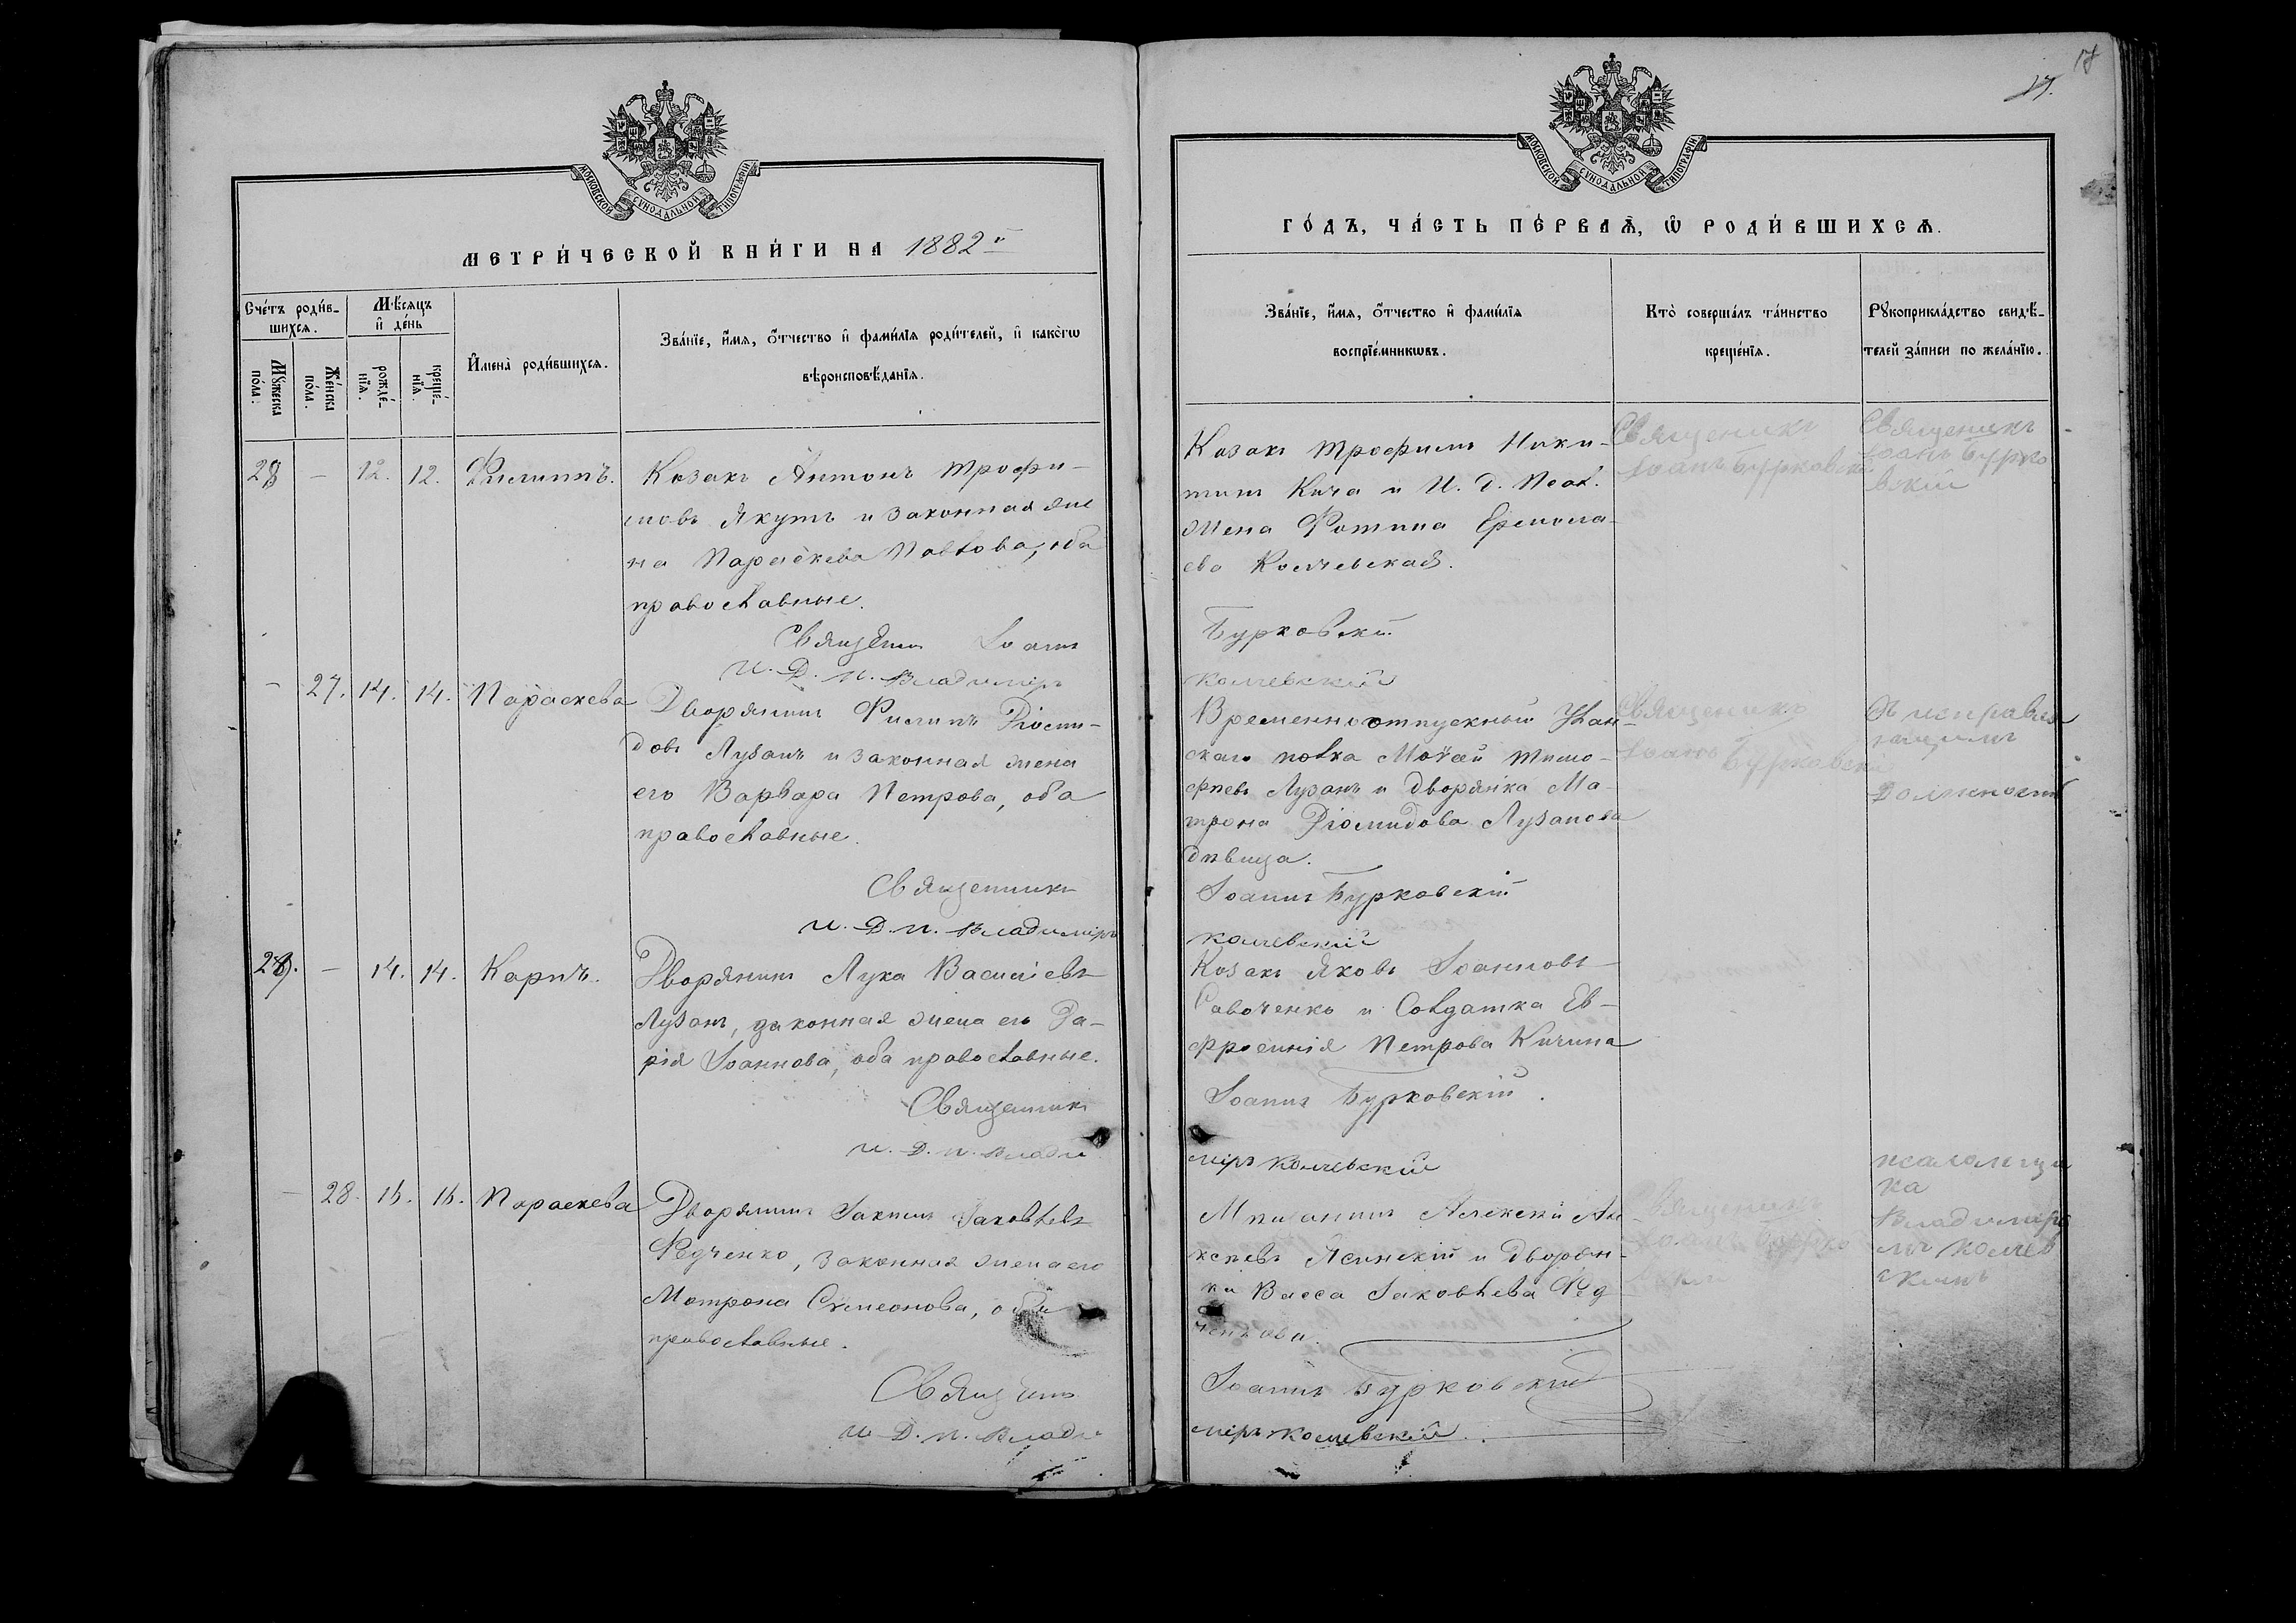 МОСКОВСКОЙ СѴНОДАЛЬНОЙ ТИПОГРАФІИ
МЕТРИ́ЧЕСКОЙ КНИ́ГИ НА 1882й
Сче́тъ роди́в-
шихся.
Мѣ́сяцъ
и҆ де́нь
И҆мена̀ роди́вшихся.
Зва́нїе, и҆́мя, ѻ҆́тчество и҆ фами́лїя роди́телей, и҆ како́гѡ
вѣроисповѣ́данїя.
Мꙋ́жеска
по́ла.
Же́нска
по́ла.
рожде́-
нїя.
креще́-
нїя.
28 — 12. 12. Филиппъ.
Козакъ Антонъ Трофи-
мовъ Якутъ и законная же
на Параскева Павлова, оба
православные.
Іоанъ
И. Д. п. Владиміръ
— 27. 14. 14. Параскева
Дворянинъ Филипъ Діоми-
довъ Лузанъ и законная жена
его Варвара Петрова, оба
православные.
Священникъ
И. Д. п. Владиміръ
29. — 14. 14. Карпъ.
Дворянинъ Лука Василіевъ
Лузанъ, законная жена его Да-
рія Іоаннова, оба православные.
Священникъ
И. Д. п. Влади
— 28. Параскева
Дворянинъ Іаковлевъ
Федченко, законная жена его
Матрона Симеонова, оба
православные.
И. Д. п. Влади
17
17.
МОСКОВСКОЙ СѴНОДАЛЬНОЙ ТИПОГРАФІИ
ГО́ДЪ, ЧА́СТЬ ПЕ́РВАЯ, Ѡ҆ РОДИ́ВШИХСЯ.
Зва́нїе, и҆́мя, ѻ҆́тчество и҆ фами́лїя
воспрїе́мникѡвъ.
Кто̀ соверша́лъ та́инство
креще́нїя.
Рꙋкоприкла́дство свидѣ́-
телей за́писи по жела́нїю.
Козакъ Трофимъ Ники-
тинъ Кича и И. Д. Псал.
жена Фотина Ермола-
ева Колчевская.
Бурковскій
Колчевскій
Священикъ
Іоанъ Бурковскій
Священикъ
Іоанъ Бурко
вскій
Временноотпускный Улан-
скаго полка Тимо-
феевъ Лузанъ и дворянка Ма-
трона Діомидова Лузанова
дѣвица.
Іоаннъ Бурковскій
Колчевскій
Священикъ
Іоанъ Бурковскій
исправля
ющимъ
Должность
Козакъ Яковъ Іоанновъ
Савоченко и Солдатка Ев-
фросинія Петрова Кичина
Іоаннъ Бурковскій.
міръ Колчевскій
Мѣщанинъ Алексѣй Але
ксѣевъ Ясинскій и дворян-
ка Васса Іаковлева Фед
ченкова.
Іоаннъ Бурковскій
міръ Колчевскій.
Священикъ
псаломщи
ка
Владиміро
мъ Колчев
скимъ